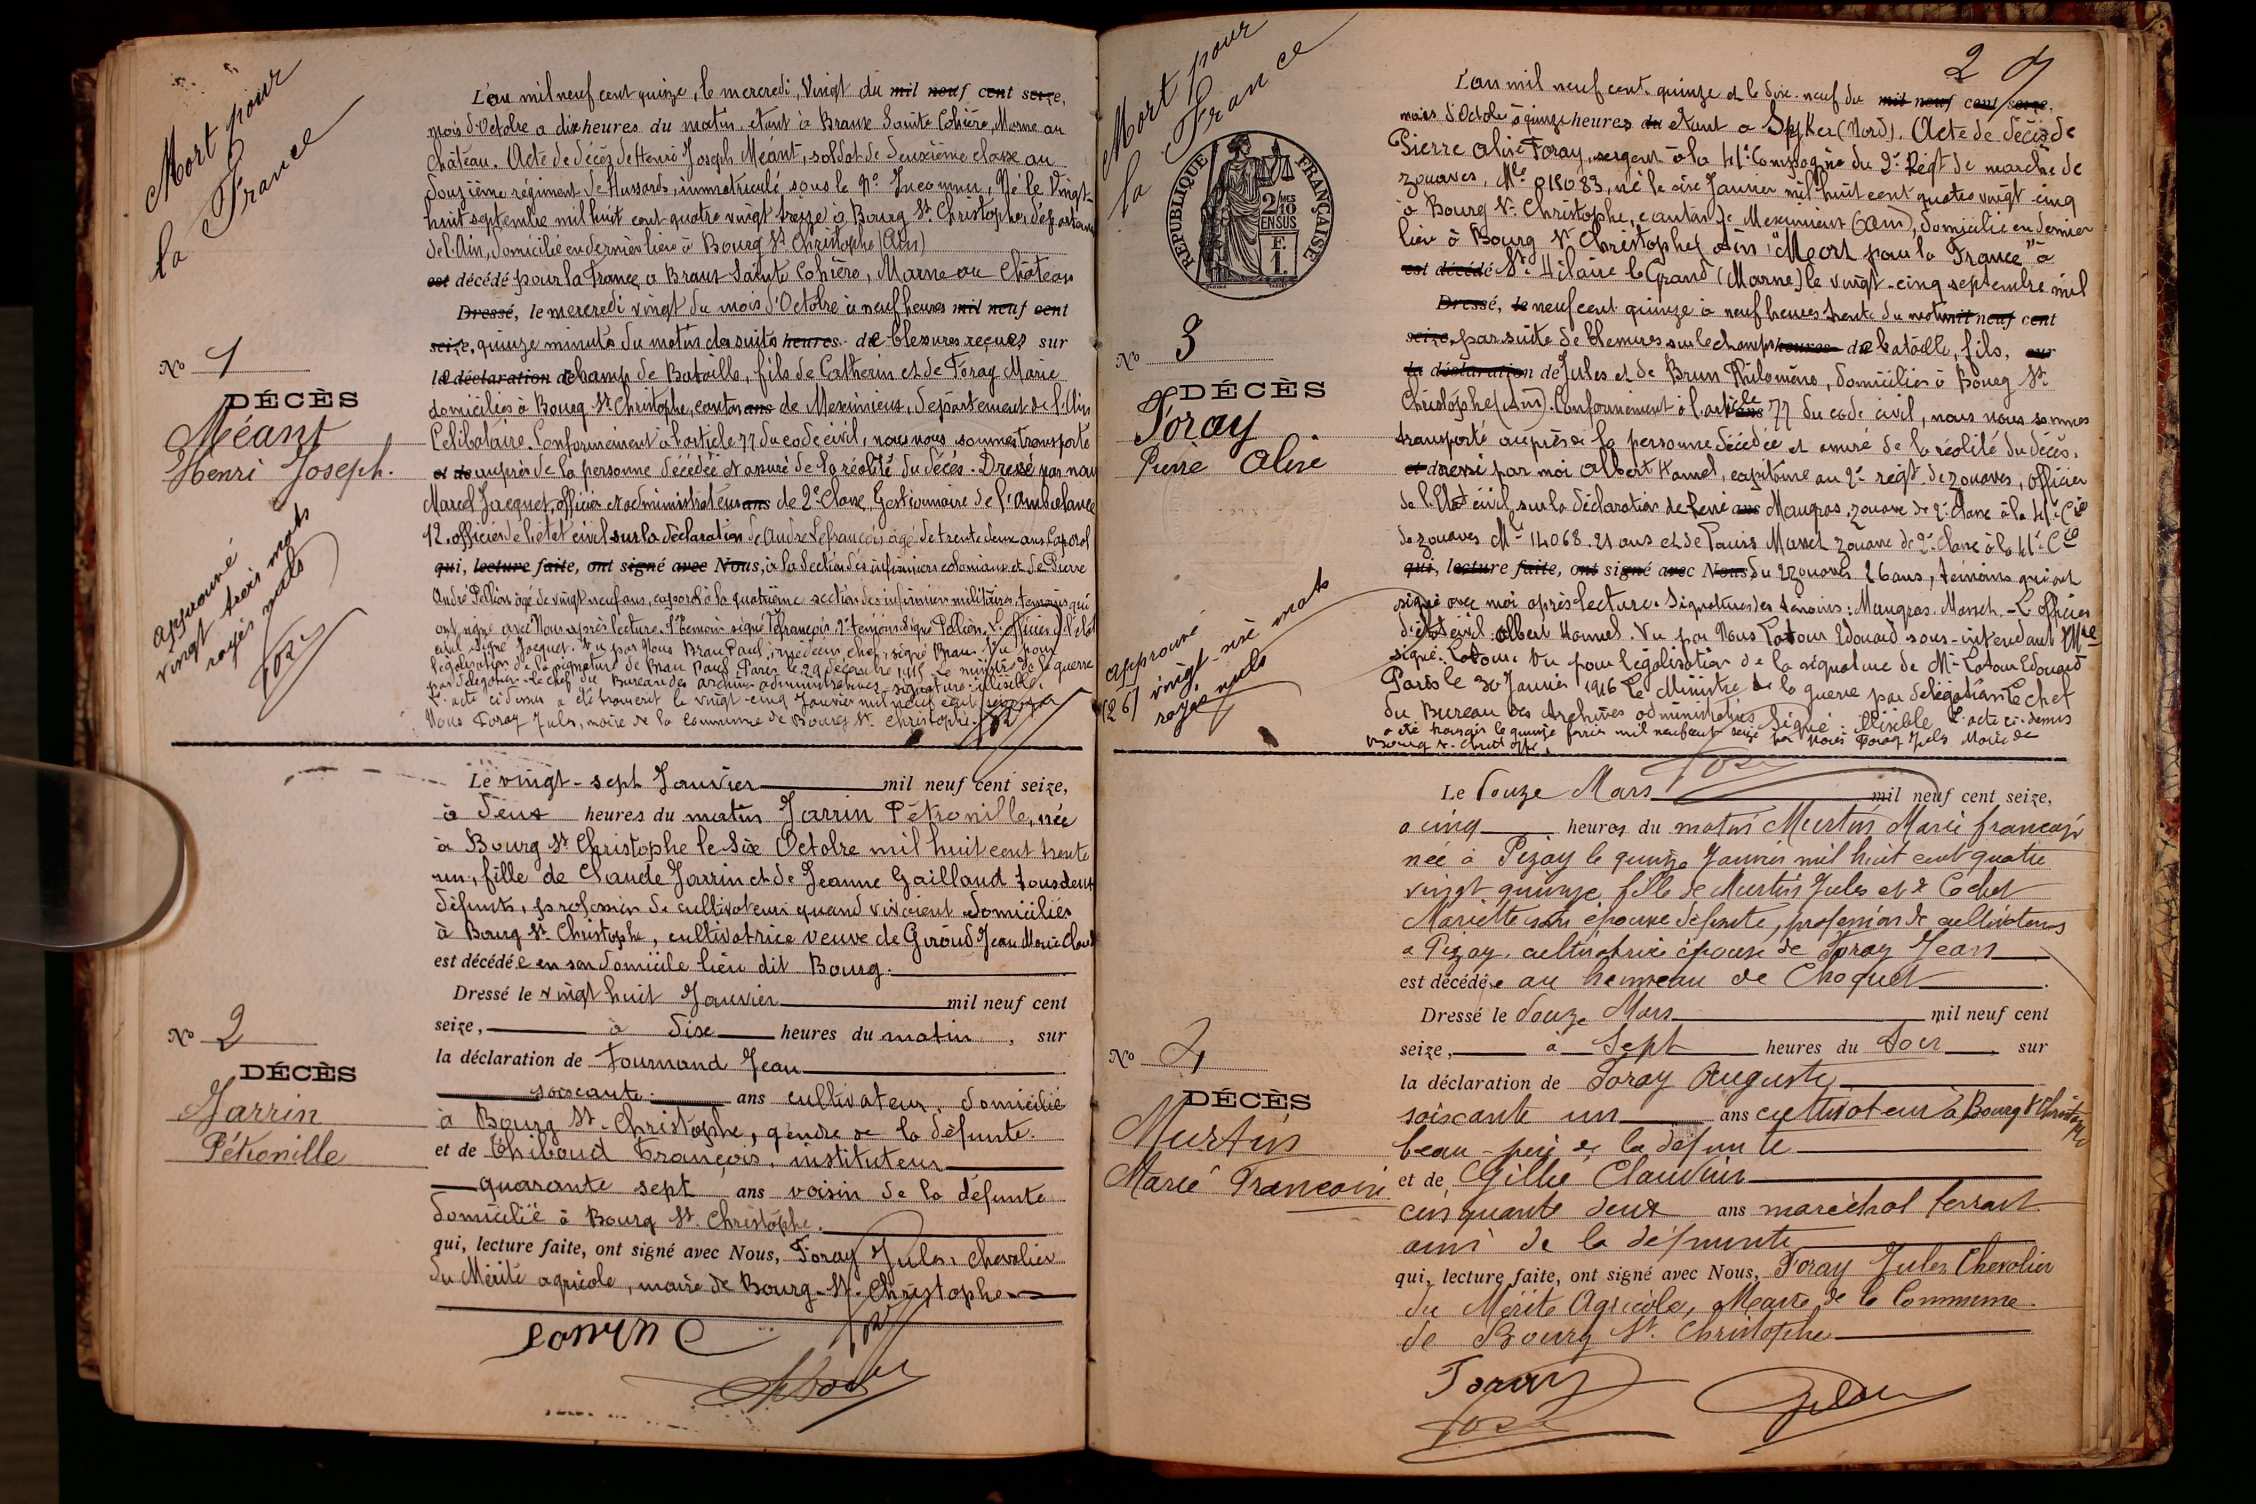 Mort pour
la France
L'an mil neuf cent quinze, le mercredi, Vingt du mil neuf cent seize,
mois d'Octobre a dix heures du matin, etant à Braux Sainte Cohière, Marne au
Château. Acte de décès de Henri Joseph Méant, soldat de deuxième classe au
douzième régiment de Hussards, immatriculé sous le No Inconnu, Né le Vingt-
huit septembre mil huit cent quatre vingt treize à Bourg St Christophe, département
de l'Ain, domicilié en dernier lieu à Bourg St Christophe (Ain)
est décédé pour la France, a Braux Sainte Cohière, Marne au Château
Dressé, le mercredi vingt du mois d'Octobre à neuf heures mil neuf cent
seize, quinze minutes du matin des suites heures de blessures reçues sur
la déclaration de champ de Bataille, fils de Catherin et de Foray Marie
domiciliés à Bourg-St Christophe, canton ans de Meximieux, département de l'Ain
Célibataire. Conformément à l'article 77 du code civil, nous nous sommes transporté
et de auprès de la personne décédée et assuré de la réalité du décès. Dressé par nous
Marcel Jacquet, officier et administrateur ans de 2e Classe, Gestionnaire de l'Ambulance
12, officier de l'état civil sur la déclaration de André Lefrançois âgé de trente deux ans Caporal
qui, lecture faite, ont signé avec Nous, à la section des infirmiers coloniaux et de Pierre
André Pellion âgé de vingt neuf ans, caporal à la quatrième section des infirmiers militaires, témoins qui
ont signé avec Nous après lecture. 1er Témoin signé Lefrançois, 2e témoin signé Pellion, L'officier de l'état
civil signé Jacquet. Vu par Nous Brau Paul, médecin chef, signé Brau. Vu pour
légalisation de la signature de Brau Paul, Paris le 29 décembre 1915 Le ministre de la guerre
par délégation, Le chef du Bureau des archives administratives signature: illisible.
L'acte ci dessus a été transcrit le vingt-cinq Janvier mil neuf cent seize par
Nous Foray Jules, maire de la commune de Bourg St Christophe.
No 1
DÉCÈS
Méant
Henri Joseph.
approuvé
vingt trois mots
rayés nuls
Le vingt-sept Janvier mil neuf cent seize,
à deux heures du matin Jarrin Pétronille, née
à Bourg St Christophe le Six Octobre mil huit cent trente
un, fille de Claude Jarrin et de Jeanne Gaillaud tous deux
défunts, profession de cultivateurs quand vivaient domiciliés
à Bourg St Christophe, cultivatrice veuve de Giroud Jean Marie Claude
est décédée en son domicile lieu dit Bourg.
Dressé le vingt huit Janvier mil neuf cent
seize, à dix heures du matin, sur
la déclaration de Tournand Jean
soixante ans cultivateur, domicilié
à Bourg St-Christophe, gendre de la défunte.
et de Thibaud François, instituteur
quarante sept ans voisin de la défunte
domicilié à Bourg St. Christophe.
qui, lecture faite, ont signé avec Nous, Foray Jules, Chevalier
du Mérite agricole, maire de Bourg-St-Christophe
No 2
DÉCÈS
Jarrin
Pétronille
2
Mort pour
la France
RÉPUBLIQUE FRANÇAISE
2/10 MES
EN SUS
F.
1.
L'an mil neuf cent quinze et le dix-neuf du mil neuf cent seize,
mois d'Octobre à quinze heures du etant a Spyker (Nord). Acte de décès de
Pierre Alixe Foray, sergent à la 41e Compagnie du 2e Régt de marche de
zouaves, Mle 015083, né le six Janvier mil huit cent quatre vingt-cinq
à Bourg St-Christophe, canton de Meximieux (Ain), domicilié en dernier
lieu à Bourg St Christophe (Ain) "Mort pour la France" à
est décédé St-Hilaire le Grand (Marne) le vingt-cinq septembre mil
Dressé, le neuf cent quinze à neuf heures trente du matin mil neuf cent
seize, par suite de blessures sur le champ heures de bataille, fils, sur
la déclaration de Jules et de Brun Philomène, domiciliés à Bourg St-
Christophe (Ain). Conformément à l'article ans 77 du code civil, nous nous sommes
transporté auprès de la personne décédée et assuré de la réalité du décès.
et dressé par moi Albert Hamel, capitaine au 2e régt. de zouaves, officier
de l'Etat civil, sur la déclaration de René ans Maugras, zouave de 2e Classe à la 41e Cie
de zouaves Mle 14068. 21 ans et de Louis Massch zouave de 2e Classe à la 41e Cie
qui, lecture faite, ont signé avec Nous du 2 zouaves 26 ans, témoins qui ont
signé avec moi après lecture. Signatures des témoins: Maugras. Massch. L'officier
d'état civil Albert Hamel. Vu par Nous Latour Edouard sous-intendant Mre
signé. Latour. Vu pour légalisation de la signature de Mr Latour Edouard
Paris le 30 Janvier 1916 Le Ministre de la guerre par délégation Le chef
du Bureau des Archives administratives Signé: illisible L'acte ci-dessus
a été transcrit le quinze février mil neuf cent seize par Nous Foray Jules Maire de
Bourg St-Christophe.
No 3
DÉCÈS
Foray
Pierre Alixe
approuvé
(26) vingt-six mots
rayés nuls
Le douze Mars mil neuf cent seize,
a cinq heures du matin Murtin Marie françoise
née à Pizay le quinze Janvier mil huit cent quatre
vingt quinze, fille de Murtin Jules et de Cochet
Mariette son épouse défunte, profession de cultivateurs
a Pizay, cultivatrice épouse de Foray Jean
est décédée au hameau de Choquet
Dressé le douze Mars mil neuf cent
seize, a sept heures du soir sur
la déclaration de Foray Auguste,
soixante un ans cultivateur à Bourg St Christophe
beau-père de la défunte
et de Gillie Claudius
cinquante deux ans maréchal ferrant
ami de la défunte
qui, lecture faite, ont signé avec Nous, Foray Jules Chevalier
du Mérite Agricole, Maire de la Commune
de Bourg St. Christophe
Foray
No 4
DÉCÈS
Murtin
Marie Françoise